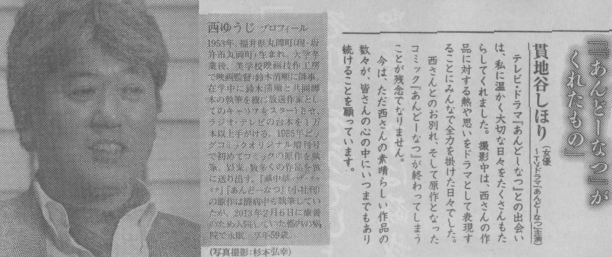 『あんどーなつ』が
くれたもの
貫地谷しほり
(女優
〜TVドラマ『あんどーなつ』主演)
テレビ・ドラマ『あんどーなつ』との出会い
は、私に温かく大切な日々をたくさんもた
らしてくれました。撮影中は、西さんの作
品に対する熱や思いをドラマとして表現す
ることにみんなで全力を掛けた日々でした。
西さんとのお別れ、そして原作となった
コミック『あんどーなつ』が終わってしまう
ことが残念でなりません。
今は、ただ西さんの素晴らしい作品の
数々が、皆さんの心の中にいつまでもあり
続けることを願っています。
西ゆうじ プロフィール
1953年、福井県丸岡町(現・坂
井市丸岡町)生まれ。大学卒
業後、美学校映画技作工房
で映画監督・鈴木清順に師事。
在学中に鈴木清順と共同脚
本の執筆を機に放送作家とし
てのキャリアをスタートさせ、
ラジオ・テレビの台本を1万
本以上手がける。1985年ビッ
グコミックオリジナル増刊号
で初めてコミックの原作を執
筆。以来、数多くの作品を世
に送り出す。
『あんどーなつ』(小社刊)
の原作は闘病中も執筆してい
たが、2013年2月6日に療養
のため入院していた都内の病
院で永眠。享年59歳。
(写真撮影:杉本弘幸)